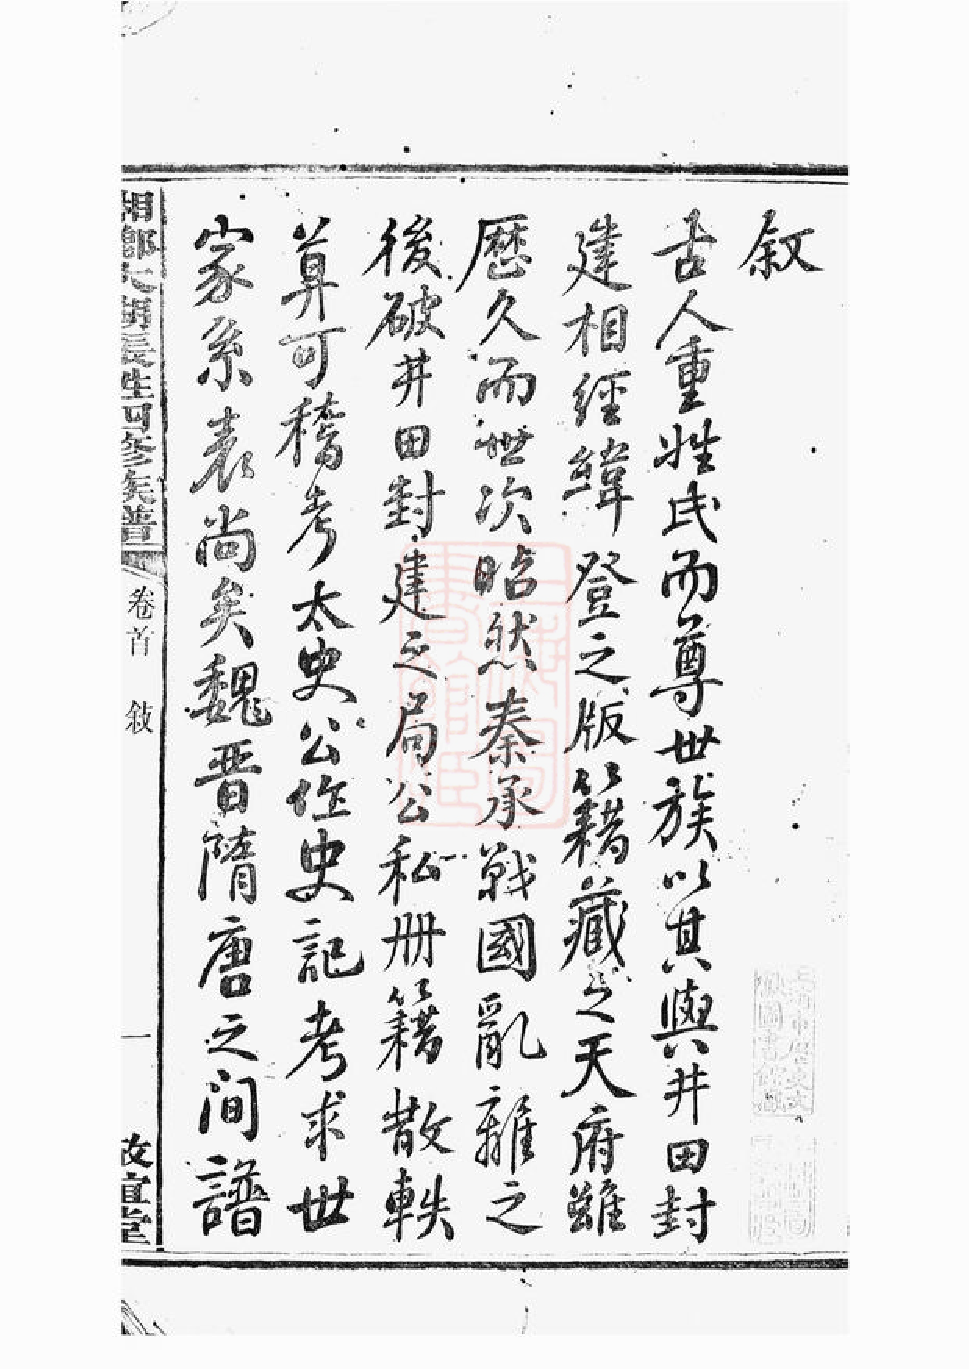 叙
古人重姓氏而尊世族以其與井田封
建相經緯登之版籍藏之天府雖
歷久而世次昭然秦承戰國亂離之
後破井田封建之局公私册籍散軼
算可稽考太史公作史記考求世
家系表尚矣魏晋隋唐之间譜
湘鄉大湖長姓四修族譜
卷首
敍
一
敦誼堂